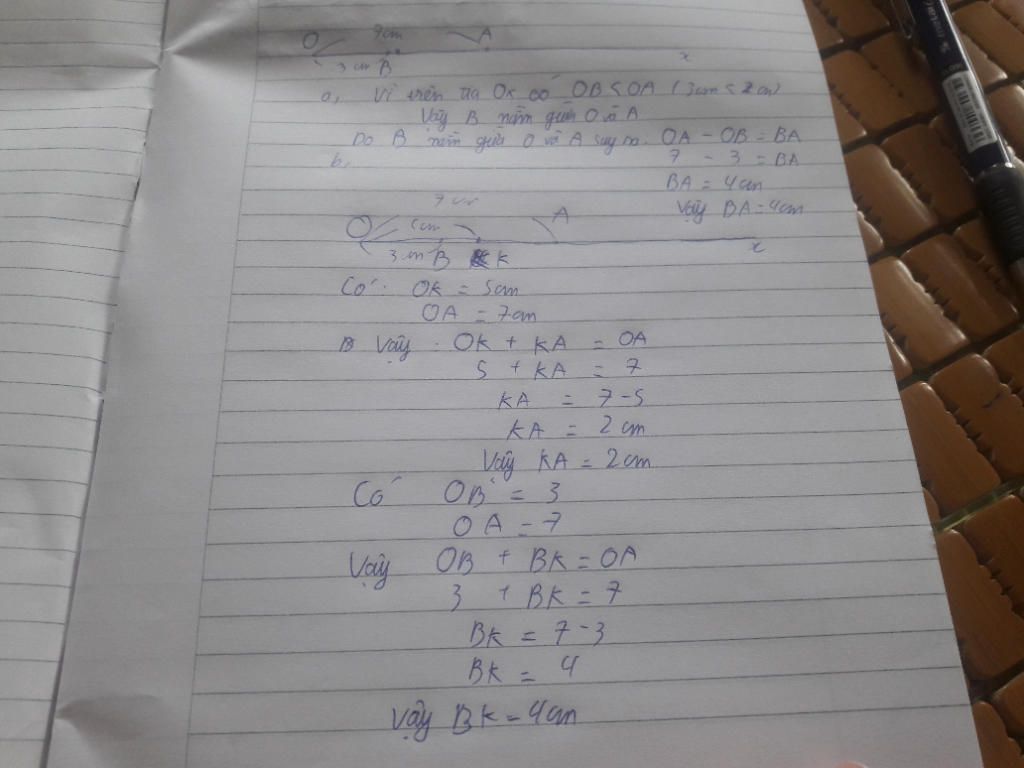 O 7cm A
3 cm B x
a, Vì trên tia Ox có OB < OA (3cm < 7cm)
Vậy B nằm giữa O và A
Do B nằm giữa O và A suy ra: OA - OB = BA
b, 7 - 3 = BA
BA = 4cm
Vậy BA = 4cm
7 cm
O 5cm A
3 cm B K x
Có: OK = 5cm
OA = 7cm
Vậy: OK + KA = OA
5 + KA = 7
KA = 7-5
KA = 2 cm
Vậy KA = 2cm
Có OB = 3
OA = 7
Vậy OB + BK = OA
3 + BK = 7
BK = 7-3
BK = 4
Vậy BK = 4cm